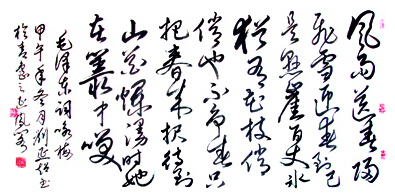 风雨送春归
飞雪迎春到已
是悬崖百丈冰
犹有花枝俏
俏也不争春只
把春来报待到
山花烂漫时她
在丛中笑
毛泽东词咏梅
甲午年冬月刘